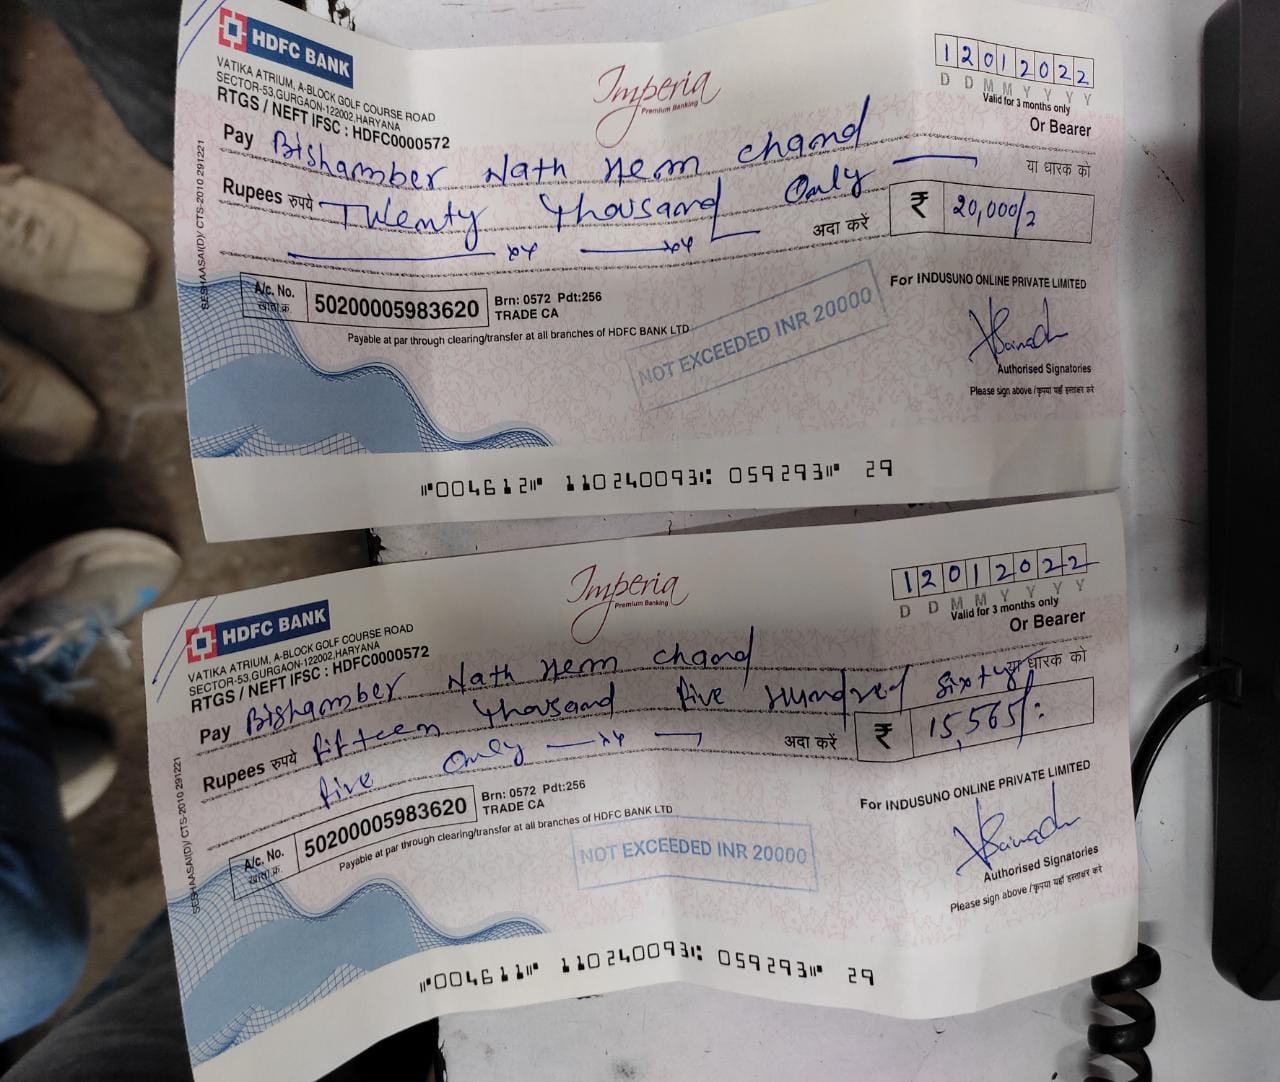 HDFC BANK
VATIKA ATRIUM, A-BLOCK GOLF COURSE ROAD
SECTOR-53, GURGAON-122002, HARYANA
RTGS / NEFT IFSC : HDFC0000572
Imperia
Premium Banking
12012022
D D M M Y Y Y Y
Valid for 3 months only
Or Bearer
Pay Bishamber Nath Hem chand
या धारक को
Rupees रुपये Twenty Thousand Only
अदा करें ₹ 20,000/2
A/c. No.
खाता क्र.
50200005983620
Brn: 0572 Pdt:256
TRADE CA
Payable at par through clearing/transfer at all branches of HDFC BANK LTD
NOT EXCEEDED INR 20000
For INDUSUNO ONLINE PRIVATE LIMITED
Authorised Signatories
Please sign above / कृपया यहाँ हस्ताक्षर करें
SESHAASAI(D)/ CTS-2010 291221
⑈004612⑈ 110240093⑆ 059293⑈ 29
HDFC BANK
VATIKA ATRIUM, A-BLOCK GOLF COURSE ROAD
SECTOR-53, GURGAON-122002, HARYANA
RTGS / NEFT IFSC : HDFC0000572
Imperia
Premium Banking
12012022
D D M M Y Y Y Y
Valid for 3 months only
Or Bearer
Pay Bishamber Nath Hem chand
या धारक को
Rupees रुपये fifteen Thousand five Hundred sixty
five Only
अदा करें ₹ 15,565/:
A/c. No.
खाता क्र.
50200005983620
Brn: 0572 Pdt:256
TRADE CA
Payable at par through clearing/transfer at all branches of HDFC BANK LTD
NOT EXCEEDED INR 20000
For INDUSUNO ONLINE PRIVATE LIMITED
Authorised Signatories
Please sign above / कृपया यहाँ हस्ताक्षर करें
SESHAASAI(D)/ CTS-2010 291221
⑈004611⑈ 110240093⑆ 059293⑈ 29